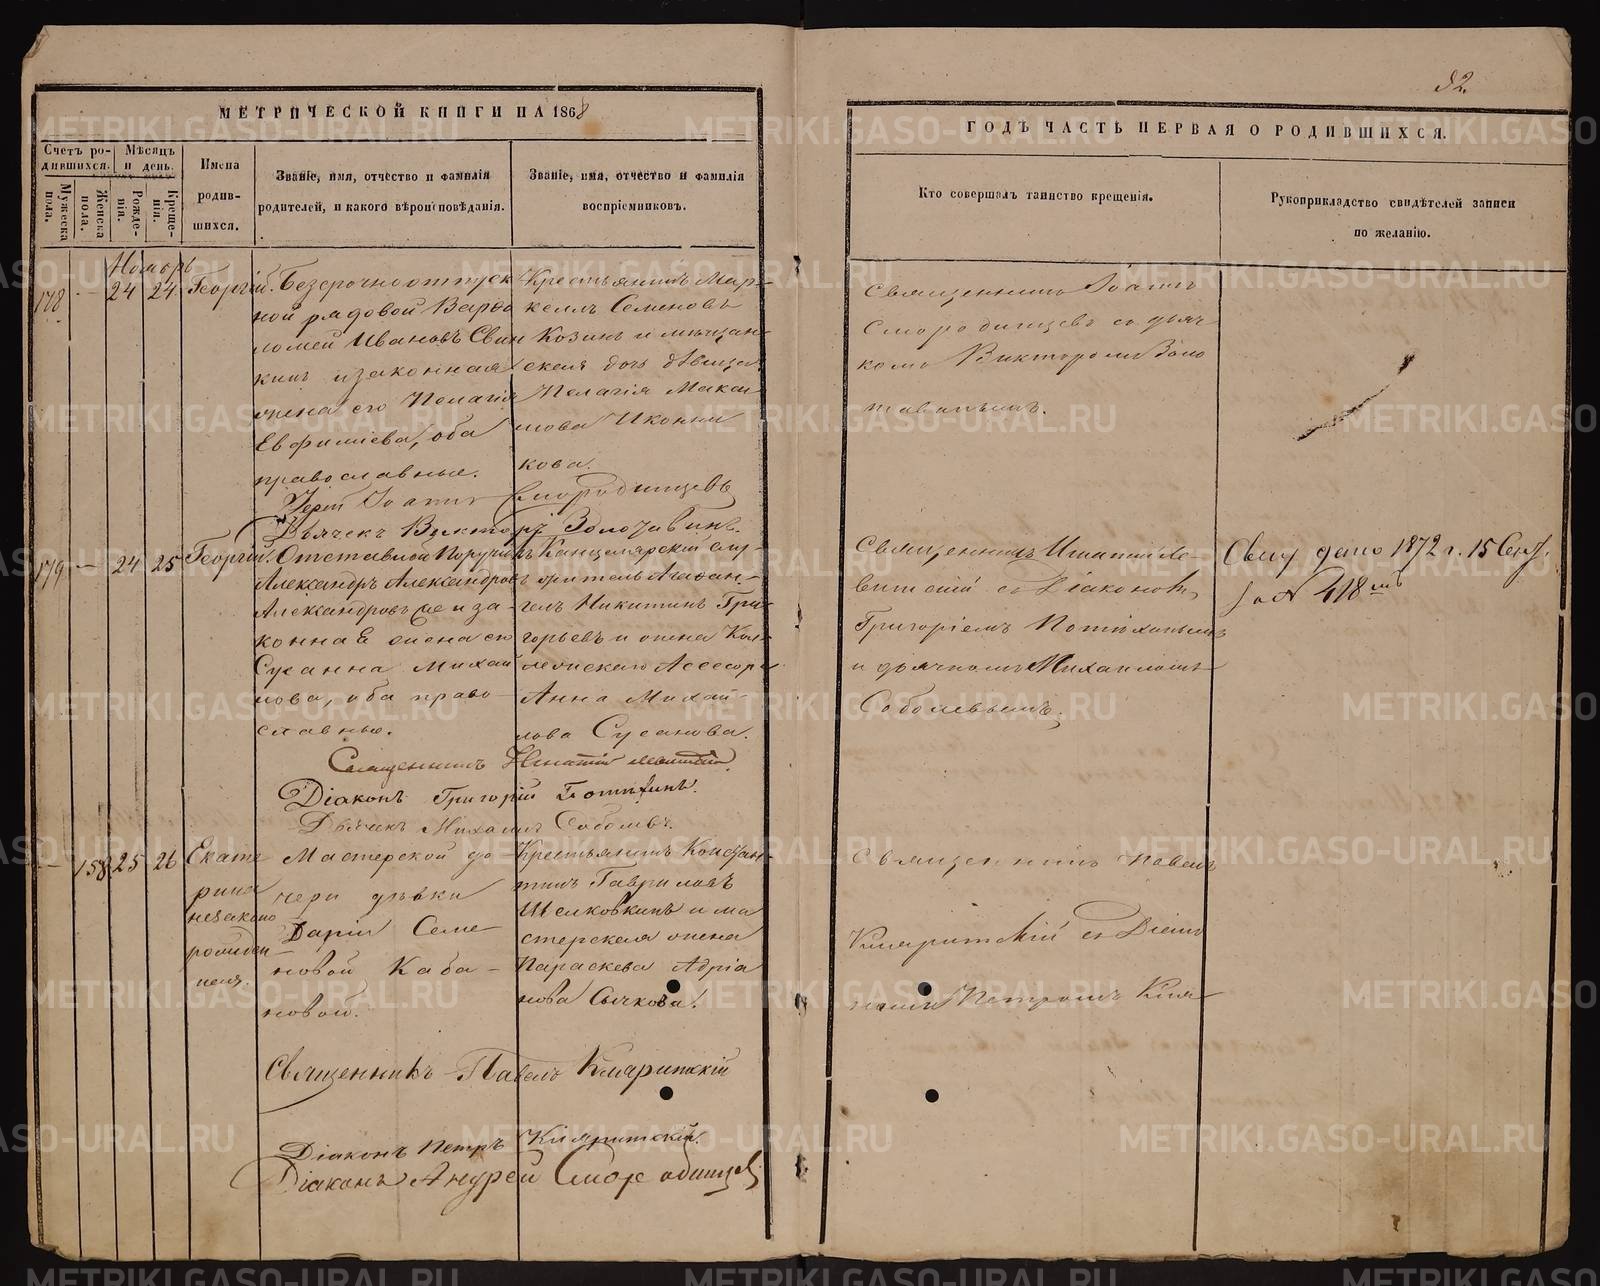 82.
МЕТРИЧЕСКОЙ КНИГИ НА 1868
ГОДЪ ЧАСТЬ ПЕРВАЯ О РОДИВШИХСЯ.
Счетъ ро-
дившихся.
Мѣсяцъ
и день.
Мужеска
пола.
Женска
пола.
Рожде-
нія.
Креще-
нія.
Имена
родив-
шихся.
Званіе, имя, отчество и фамилія
родителей, и какого вѣроисповѣданія.
Званіе, имя, отчество и фамилія
воспріемниковъ.
Кто совершалъ таинство крещенія.
Рукоприкладство свидѣтелей записи
по желанію.
Ноябрь
178 — 24 24 Георгій.
Безсрочноотпуск
ной рядовой Варѳо
ломей Ивановъ Свин
кинъ и законная
жена его Пелагія
Евфиміева, оба
православные.
Крестьянинъ Мар-
келлъ Семеновъ
Козинъ и мѣщан-
ская дочь дѣвица
Пелагія Макси
мова Иконни
кова.
Священникъ Іоаннъ
Смородинцевъ съ дьяч-
комъ Викторомъ Золо
тавинымъ.
Іерей Іоаннъ Смородинцевъ
Дьячекъ Викторъ Золотавинъ.
179 — 24 25 Георгій.
Отставной Поручикъ
Александръ Александровъ
Александровъ же и за-
конная жена его
Сусанна Михай
лова, оба право-
славные.
Канцелярскій слу-
житель Агафан-
гелъ Никитинъ Гри-
горьевъ и жена Кол-
лежскаго Асессора
Анна Михай-
лова Сусанова.
Священникъ Игнатій Ле
витскій съ Діакономъ
Григоріемъ Потѣхинымъ
и дьячкомъ Михаиломъ
Соболевымъ.
1872 г. 15 Сент.
за № 418
Священникъ Игнатій Левитскій.
Діаконъ Григорій Потѣхинъ.
Дьячекъ Михаилъ Соболевъ.
— 158 25 26 Екате
рина
незаконо
рожден-
ная.
Мастерской до
чери дѣвки
Даріи Семе
новой Каба-
новой.
Крестьянинъ Констан-
тинъ Гавриловъ
Шелковкинъ и ма
стерская жена
Параскева Адріа
нова Сычкова.
Священникъ Павелъ
Кипаритскій съ Діако
номъ Петромъ Кипа-
Священникъ Павелъ Кипаритскій
Діаконъ Петръ Кипаритскій.
Діаконъ Андрей Смородинцевъ
METRIKI.GASO-URAL.RU